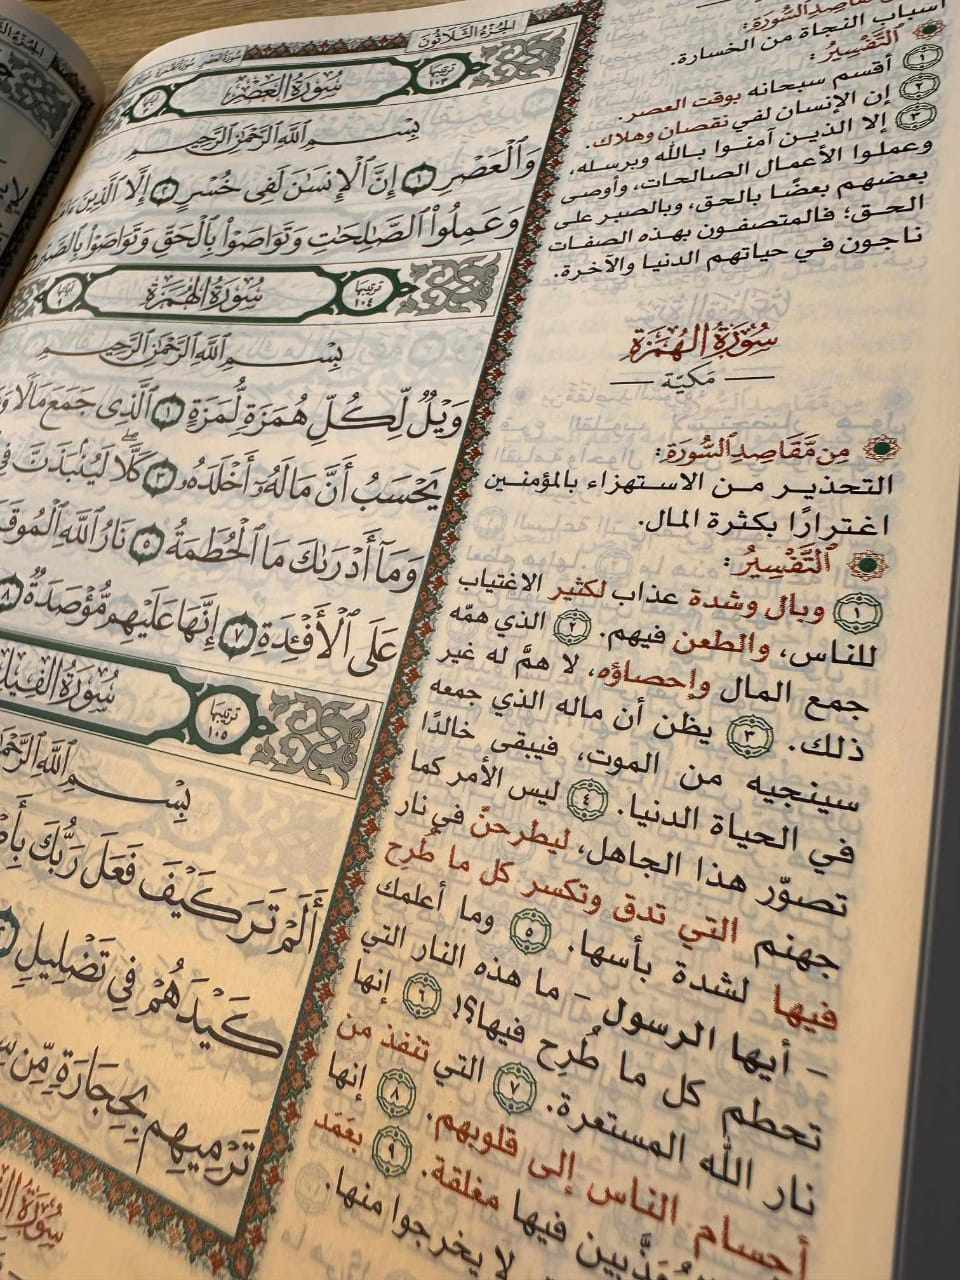 الجزء الثلاثون
سُورَةُ العَصْرِ
ترتيبها ١٠٣
بِسْمِ ٱللَّهِ ٱلرَّحْمَٰنِ ٱلرَّحِيمِ
وَٱلْعَصْرِ ١ إِنَّ ٱلْإِنسَٰنَ لَفِى خُسْرٍ ٢ إِلَّا ٱلَّذِينَ
وَعَمِلُوا۟ ٱلصَّٰلِحَٰتِ وَتَوَاصَوْا۟ بِٱلْحَقِّ وَتَوَاصَوْا۟
سُورَةُ الهُمَزَةِ
ترتيبها ١٠٤
بِسْمِ ٱللَّهِ ٱلرَّحْمَٰنِ ٱلرَّحِيمِ
وَيْلٌ لِّكُلِّ هُمَزَةٍ لُّمَزَةٍ ١ ٱلَّذِى جَمَعَ مَالًا
يَحْسَبُ أَنَّ مَالَهُۥٓ أَخْلَدَهُۥ ٣ كَلَّا ۖ لَيُنۢبَذَنَّ
وَمَآ أَدْرَىٰكَ مَا ٱلْحُطَمَةُ ٥ نَارُ ٱللَّهِ
عَلَى ٱلْأَفْـِٔدَةِ ٧ إِنَّهَا عَلَيْهِم مُّؤْصَدَةٌ ٨
سُورَةُ الفِيلِ
ترتيبها ١٠٥
بِسْمِ ٱللَّهِ
أَلَمْ تَرَ كَيْفَ فَعَلَ رَبُّكَ
كَيْدَهُمْ فِى تَضْلِيلٍ
تَرْمِيهِم بِحِجَارَةٍ مِّن
سُورَةُ
أسباب النجاة من الخسارة.
التَّفْسِيرُ:
١ أقسم سبحانه بوقت العصر.
٢ إن الإنسان لفي نقصان وهلاك.
٣ إلا الذين آمنوا بالله وبرسله،
وعملوا الأعمال الصالحات، وأوصى
بعضهم بعضًا بالحق، وبالصبر على
الحق؛ فالمتصفون بهذه الصفات
ناجون في حياتهم الدنيا والآخرة.
سُورَةُ الهُمَزَةِ
مَكيّة
مِن مَّقَاصِدِ السُّورَةِ:
التحذير من الاستهزاء بالمؤمنين
اغترارًا بكثرة المال.
التَّفْسِيرُ:
١ وبال وشدة عذاب لكثير الاغتياب
للناس، والطعن فيهم. ٢ الذي همّه
جمع المال وإحصاؤه، لا همَّ له غير
ذلك. ٣ يظن أن ماله الذي جمعه
سينجيه من الموت، فيبقى خالدًا
في الحياة الدنيا. ٤ ليس الأمر كما
تصوّر هذا الجاهل، ليطرحنَّ في نار
جهنم التي تدق وتكسر كل ما طُرِح
فيها لشدة بأسها. ٥ وما أعلمك
- أيها الرسول - ما هذه النار التي
تحطم كل ما طُرِح فيها؟! ٦ إنها
نار الله المستعرة. ٧ التي تنفذ من
أجسام الناس إلى قلوبهم. ٨ إنها
فيها مغلقة. ٩ بعَمَد
لا يخرجوا منها.